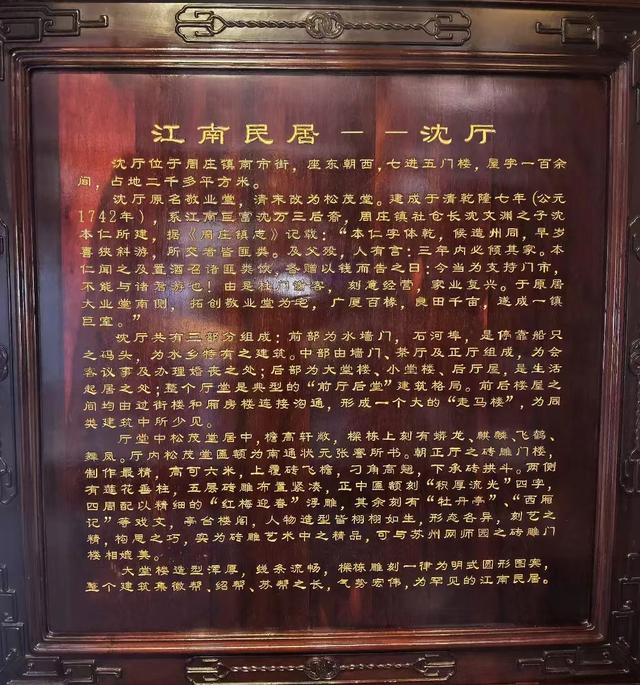 江南民居——沈厅
沈厅位于周庄镇南市街，座东朝西，七进五门楼，屋宇一百余
间，占地二千多平方米。
沈厅原名敬业堂，清末改为松茂堂。建成于清乾隆七年(公元
1742年)，系江南巨富沈万三后裔，周庄镇社仓长沈文渊之子沈
本仁所建，据《周庄镇志》记载："本仁字体乾，候造州同，早岁
喜狭斜游，所交者皆匪类。及父殁，人有言：三年内必倾其家。本
仁闻之及置酒召诸匪类饮，各赠以钱而告之曰：今当为支持门市，
不能与诸君游也！由是杜门谢客，刻意经营，家业复兴。于原居
大业堂南侧，拓创敬业堂为宅，广厦百椽，良田千亩，遂成一镇
巨室。"
沈厅共有三部分组成：前部为水墙门，石河埠，是停靠船只
之码头，为水乡特有之建筑。中部由墙门、茶厅及正厅组成，为会
客议事及办理婚丧之处；后部为大堂楼、小堂楼、后厅屋，是生活
起居之处；整个厅堂是典型的"前厅后堂"建筑格局。前后楼屋之
间均由过街楼和厢房楼连接沟通，形成一个大的"走马楼"，为同
类建筑中所少见。
厅堂中松茂堂居中，檐高轩敞，樑栋上刻有蟒龙、麒麟、飞鹤、
舞凤。厅内松茂堂匾额为南通状元张謇所书。朝正厅之砖雕门楼，
制作最精，高可六米，上覆砖飞檐，刁角高翘，下承砖拱斗。两侧
有莲花垂柱，五层砖雕布置紧凑，正中匾额刻"积厚流光"四字，
四周配以精细的"红梅迎春"浮雕，其余刻有"牡丹亭"、"西厢
记"等戏文，亭台楼阁，人物造型皆栩栩如生，形态各异，刻艺之
精，构思之巧，实为砖雕艺术中之精品，可与苏州网师园之砖雕门
楼相媲美。
大堂楼造型浑厚，线条流畅，樑栋雕刻一律为明式圆形图案，
整个建筑集徽帮、绍帮、苏帮之长，气势宏伟，为罕见的江南民居。